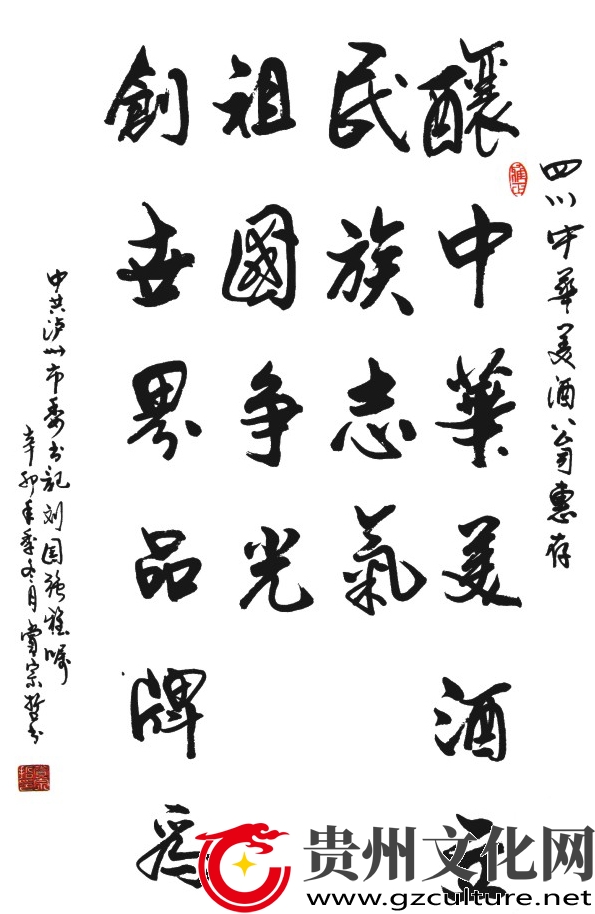 四川中華美酒公司惠存
釀中華美酒
民族志氣
創世界品牌爲
祖國争光
中共泸州市委书記刘国强雅嘱
辛卯年季冬月當宗哲书
贵州文化网
www.gzculture.net